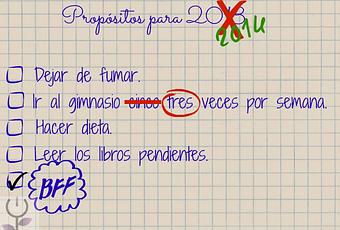 Propósitos para 2013 2014
Dejar de fumar.
Ir al gimnasio cinco tres veces por semana.
Hacer dieta.
Leer los libros pendientes.
BFF